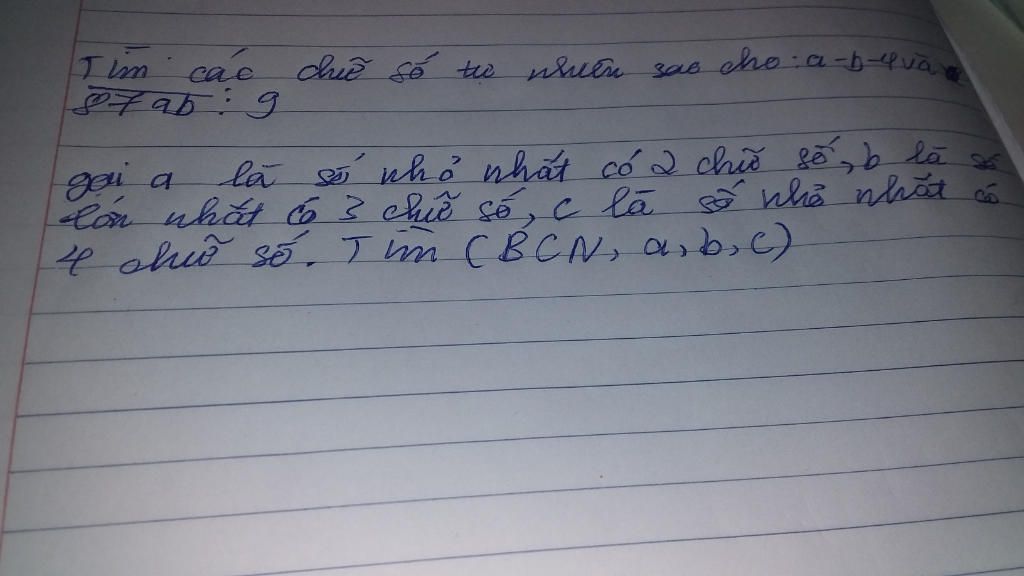 Tìm các chữ số tự nhiên sao cho : a-b-4 và
87ab ⋮ 9
gọi a là số nhỏ nhất có 2 chữ số, b là số
lớn nhất có 3 chữ số, c là số nhỏ nhất có
4 chữ số. Tìm (BCN, a, b, c)